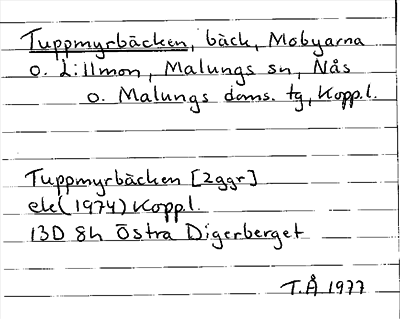 Tuppmyrbäcken, bäck, Mobyarna
o. Lillmon, Malungs sn, Nås
o. Malungs doms. tg, Kopp.l.
Tuppmyrbäcken [2ggr]
ek (1974) Kopp.l.
13D 8h Östra Digerberget
T.Å 1977